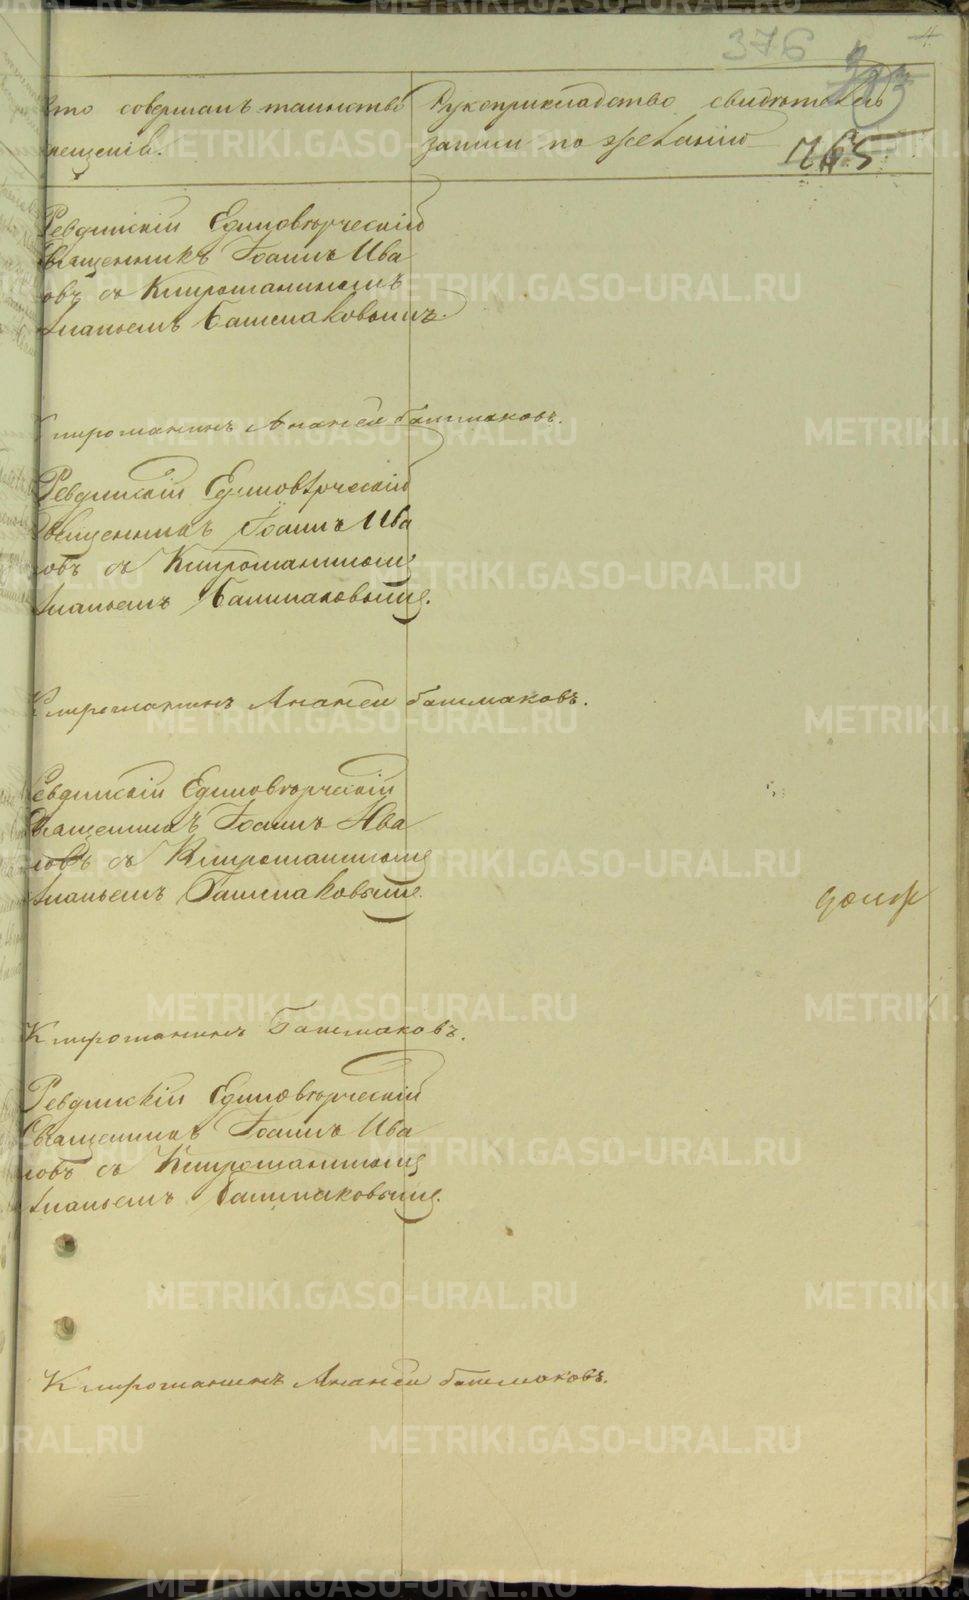 4
376
Кто совершалъ таинство Рукоприкладство свидѣтелей
крещенія. записи по желанію
765
Ревдинскій Единовѣрческій
Священникъ Іоаннъ Ива
новъ съ Клирошаниномъ
Ананьемъ Башмаковымъ.
Клирошанинъ Ананей башмаковъ.
Ревдинскій Единовѣрческій
Священникъ Іоаннъ Ива
новъ съ Клирошаниномъ
Ананьемъ Башмаковымъ.
Клирошанинъ Ананей башмаковъ.
Ревдинскій Единовѣрческій
Священникъ Іоаннъ Ива
новъ съ Клирошаниномъ
Ананьемъ Башмаковымъ.
Клирошанинъ Башмаковъ.
Ревдинскій Единовѣрческій
Священникъ Іоаннъ Ива
новъ съ Клирошаниномъ
Ананьемъ Башмаковымъ.
Клирошанинъ Ананей башмаковъ.
METRIKI.GASO-URAL.RU